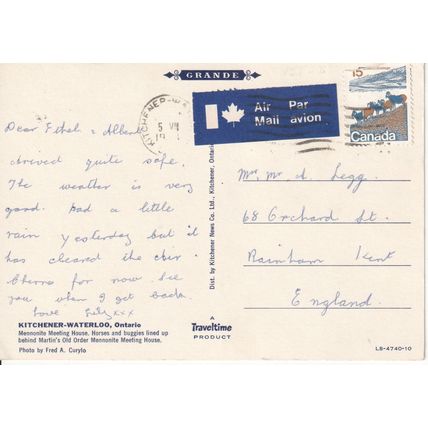 GRANDE
KITCHENER-WA
5 VIII
Air Mail
Par avion
15
Canada
Dear Ethel & Albert
arived quite safe.
The weather is very
good. had a little
rain yesterday but it
has cleared the air.
Cheerio for now. See
you when I get back.
Love xxx
Mrs Mr A. Legg.
68 Orchard St.
Rainham Kent
England.
Dist. by Kitchener News Co. Ltd., Kitchener, Ontario
KITCHENER-WATERLOO, Ontario
Mennonite Meeting House. Horses and buggies lined up
behind Martin's Old Order Mennonite Meeting House.
Photo by Fred A. Curylo
A
Traveltime
PRODUCT
LS-4740-10